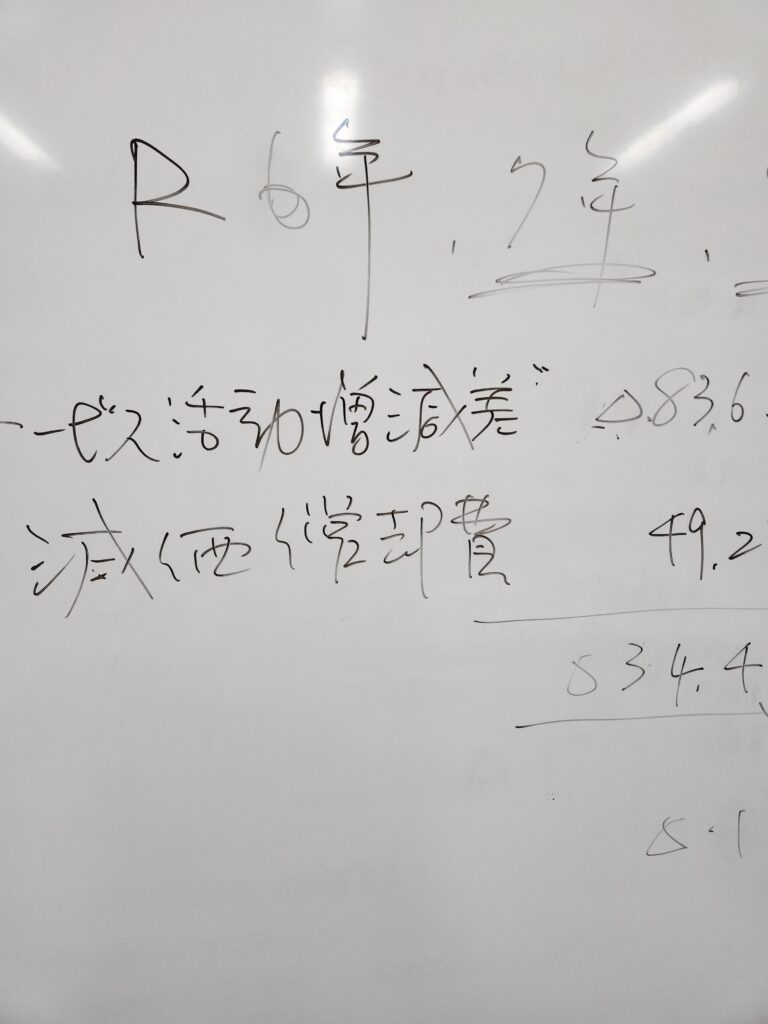 R 6年、7年、
ービス活動増減差 △83.6
減価償却費 49.2
△34.4
△・1